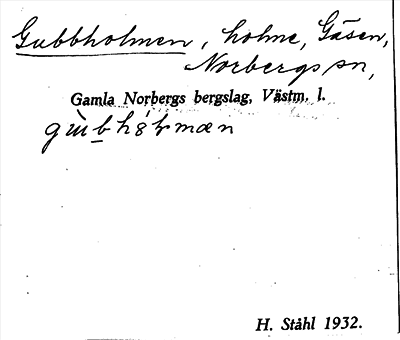 Gubbholmen, holme, Gäsen,
Norbergs sn,
Gamla Norbergs bergslag, Västm. l.
H. Ståhl 1932.